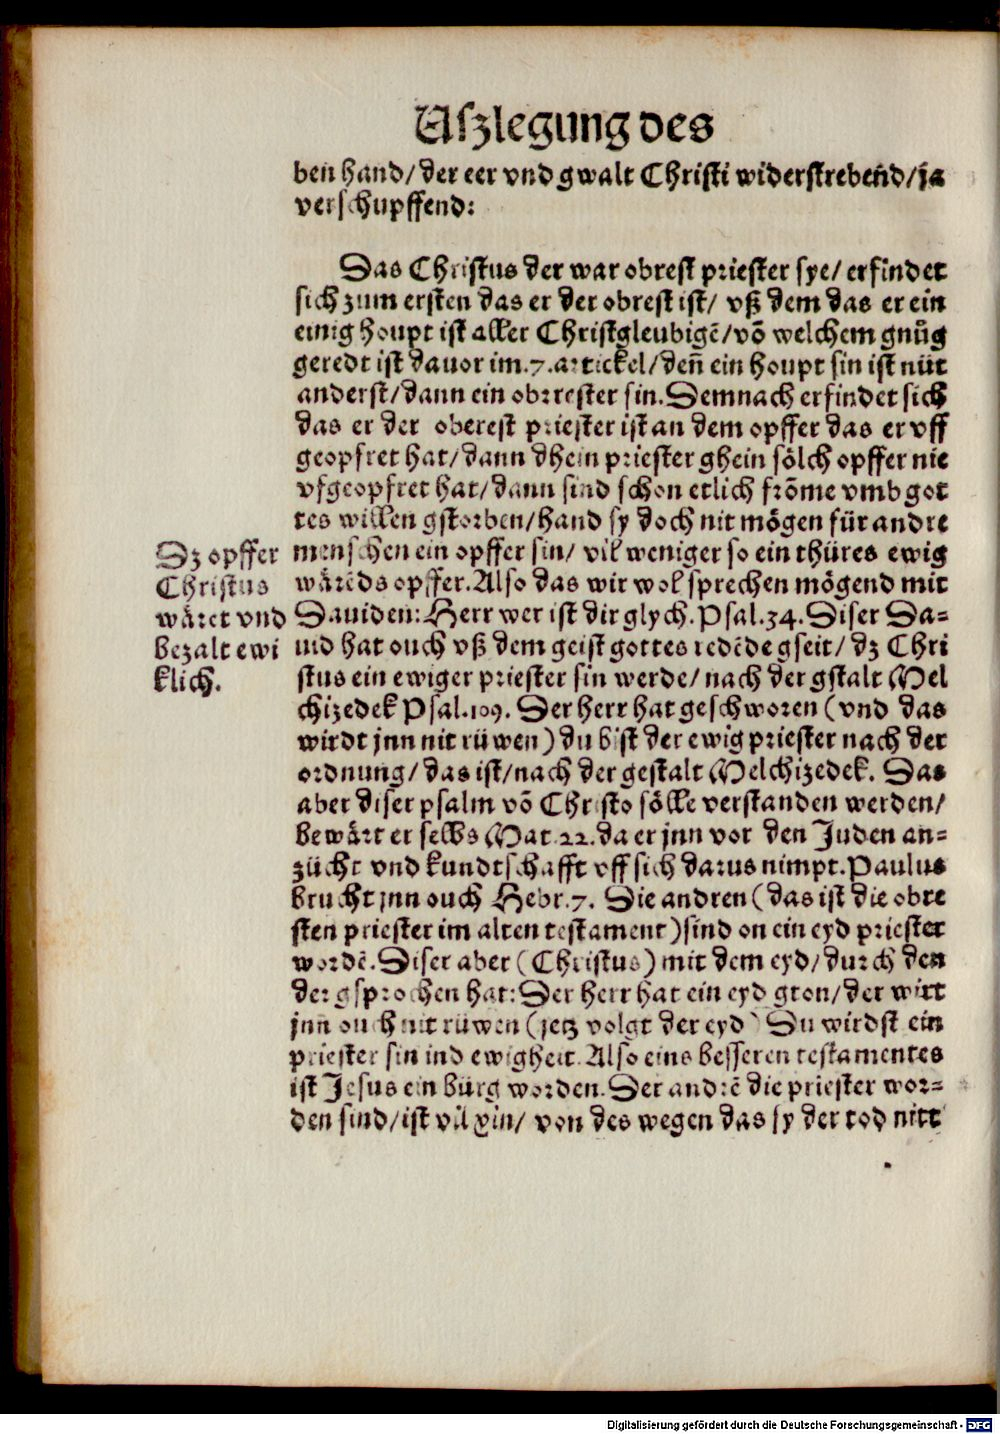 Uſzlegung des
ben hand/ der eer vnd gwalt Chriſti widerſtrebend/ ja
verſchupffend:
Das Chriſtus der war obreſt prieſter ſye/ erfindet
ſich zum erſten das er der obreſt iſt/ vß dem das er ein
einig houpt iſt aller Chriſtgleubigē/ vō welchem gnůg
geredt iſt dauor im .7. artickel/ deñ ein houpt ſin iſt nüt
anderſt/ dann ein obreſter ſin. Demnach erfindet ſich
das er der obereſt prieſter iſt an dem opffer das er vff
geopfret hat/ dann dhein prieſter ghein ſölch opffer nie
vfgeopfret hat/ dann ſind ſchon etlich frōme vmb got
tes willen gſtorben/ hand ſy doch nit mögen für andre
menſchen ein opffer ſin/ vil weniger ſo ein thüres ewig
wärēds opffer. Alſo das wir wol ſprechen mögend mit
Dauiden: Herr wer iſt dir glych. Pſal. 34. Diſer Da-
uid hat ouch vß dem geiſt gottes redēde gſeit/ dz Chri
ſtus ein ewiger prieſter ſin werde/ nach der gſtalt Mel
chizedek Pſal. 109. Der herr hat geſchworen (vnd das
wirdt jnn nit rüwen) du biſt der ewig prieſter nach der
ordnung/ das iſt/ nach der geſtalt Melchizedek. Das
aber diſer pſalm vō Chriſto ſölle verſtanden werden/
bewärt er ſelbs Mat. 22. da er jnn vor den Juden an-
zücht vnd kundtſchafft vff ſich darus nimpt. Paulus
brucht jnn ouch Hebr. 7. Die andren (das iſt die obre
ſten prieſter im alten teſtament) ſind on ein eyd prieſter
wordē. Diſer aber (Chriſtus) mit dem eyd/ durch den
der gſprochen hat: Der herr hat ein eyd gton/ der wirt
jnn ouch nit rüwen (jetz volgt der eyd) Du wirdſt ein
prieſter ſin ind ewigheit. Alſo eins beſſeren teſtamentes
iſt Jeſus ein bürg worden. Der andrē die prieſter wor-
den ſind/ iſt vil gin/ von des wegen das ſy der tod nitt
Dz opffer
Chriſtus
wäret vnd
bezalt ewi
klich.
Digitalisierung gefördert durch die Deutsche Forschungsgemeinschaft - DFG